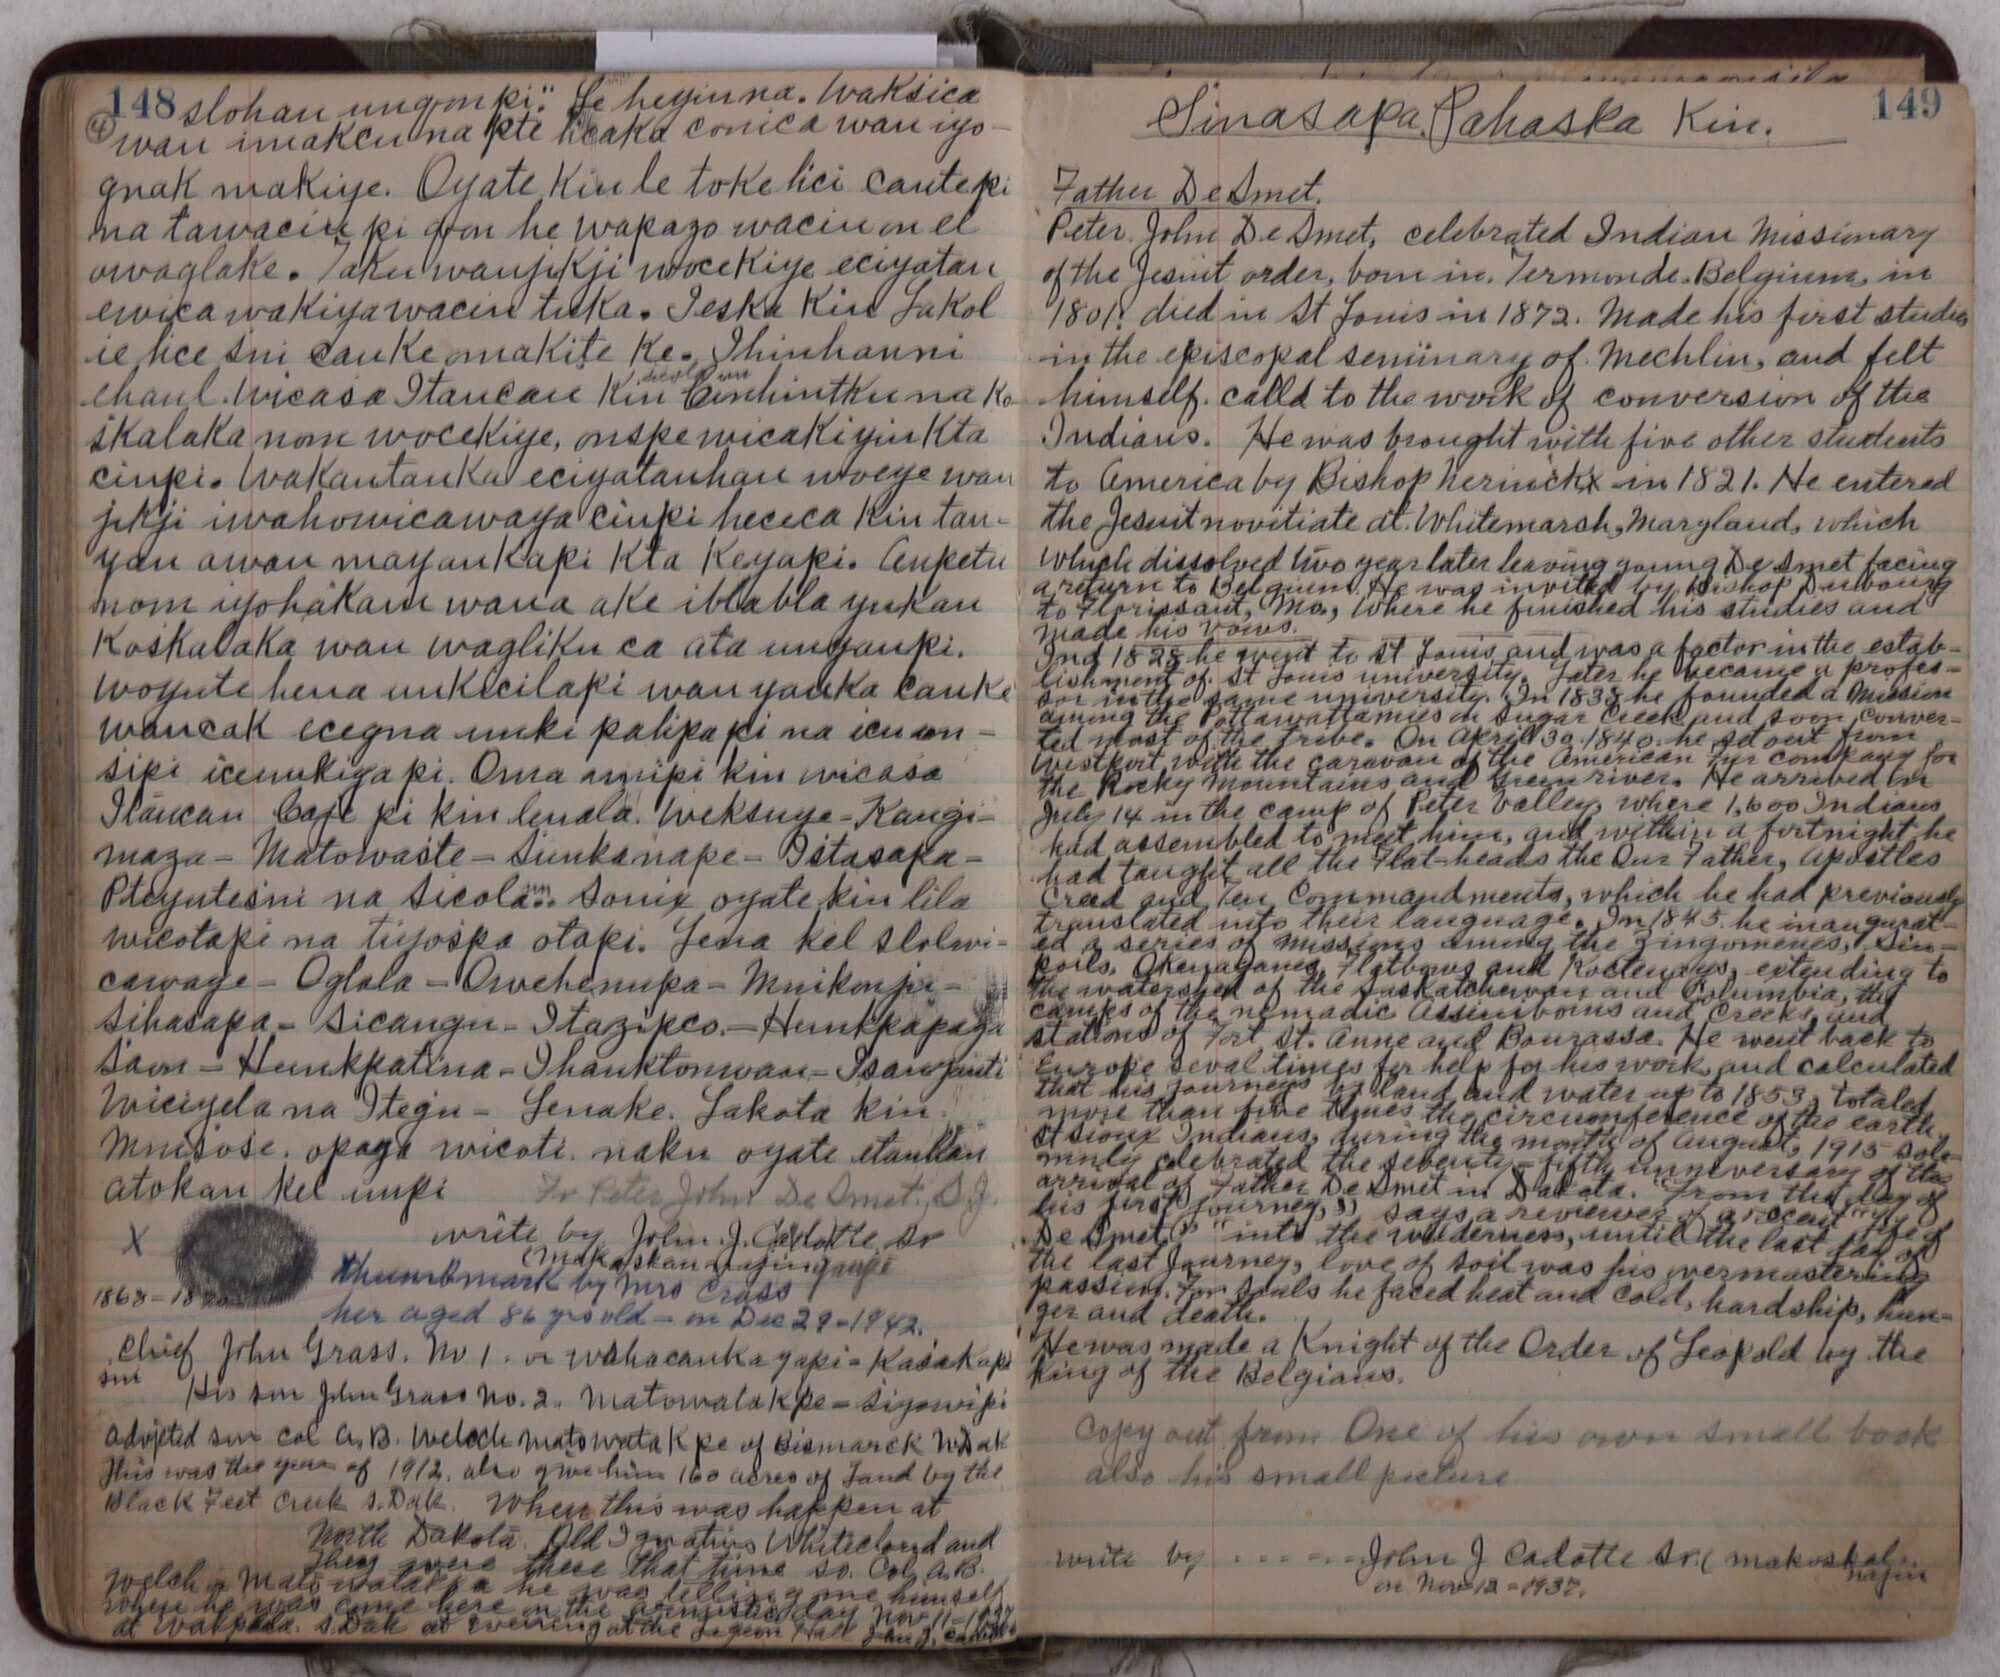 148 slohan ungonpi." Le heyinna. Waksica
4 wan imakcu na pte hcaka conica wan iyo-
gnak makiye. Oyate kin le toke hci cantepi
na tawacin pi qon he wapazo wacin on el
owaglake. Taku wanjikji wocekiye eciyatan
ewica wakiya wacin tuka. Ieska kin Lakol
ie hce sni canke omakite ke. Ihinhanni
ehanl. Wicasa Itancan kin Cinhintku na ko-
skalaka nom wocekiye, onspewicakiyin kta
cinpi. Wakantanka eciyatanhan woeye wan
jikji iwahowicawaya cinpi hececa kin tan-
yan awan mayankapi kta keyapi. Anpetu
nom iyohakam wana ake iblabla yukan
koskalaka wan wagliku ca ata unyanpi.
woyute hena unkicilapi wan yanka canke
wancak ecegna unki pahpapi na icu on-
sipi icunkiyapi. Oma anipi kin wicasa
Itancan Caje pi kin lenala. Weksuye - Kangi-
maza - Matowaste - Sunkanape - Istasapa -
Pteyutesni na Sicola un. Sonix oyate kin lila
wicotapi na tiyospa otapi. Lena kel slolwi-
cawaye - Oglala - Owehenupa - Mnikonju -
Sihasapa - Sicangu - Itazipco. - Hunkpapaya
Saon - Hunkpatina - Ihanktonwan - Isanyanti
Wiciyela na Itegu - Lenake. Lakota kin
Mnisose. opaya wicoti. naku oyate etanhan
atokan kel unpi Fr Peter John De Smet., S.J.
X write by John. J. Cadotte. Sr
(Makaskan najin
thumbmark by Mrs Grass
her aged 86 yrs old - on Dec 29-1942.
Chief John Grass. No 1. or wahacanka yapi - Kasakapi
sni
His son John Grass No. 2. Matowatakpe - Siyowipi
adopted son Col A.B. Welch Matowatakpe of Bismarck N.Dak
This was the year of 1912. also give him 160 acres of Land by the
Black Feet Creek S.Dak. When this was happen at
North Dakota. Old Ignatius Whitecloud and
They were there that time so. Col. A.B.
Welch - Matowatakpe he was telling me himself
when he was come here on the armistice day Nov-11-
at Wakpala. S.Dak at evening at the Legion Hall John J. Cadotte
149
Sinasapa, Pahaska Kin.
Father De Smet.
Peter John De Smet, celebrated Indian Missionary
of the Jesuit order, born in. Termonde. Belgium, in
1801. died in St Louis in 1872. Made his first studies
in the episcopal seminary of Mechlin, and felt
himself. calld to the work of conversion of the
Indians. He was brought with five other students
to America by Bishop Nerinckx in 1821. He entered
the Jesuit novitiate at. Whitemarsh, Maryland, which
which dissolved two year later leaving young De Smet facing
a return to Belgium. He was invited by Bishop Dubourg
to Florissant, Mo., where he finished his studies and
made his vows.
Ind 1828 he went to St Louis and was a factor in the estab-
lishment of St Louis university. Later he became a profes-
sor in the same university. In 1838 he founded a Mission
among the Pottawattamies on Sugar Creek and soon conver-
ted most of the tribe. On April 30. 1840. he set out from
Westport with the caravan of the American Fur company for
the Rocky Mountains and Green river. He arrived on
July 14 in the camp of Peter Valley, where 1,600 Indians
had assembled to meet him, and within a fortnight he
had taught all the Flat-heads the Our Father, Apostles
Creed and Ten Commandments, which he had previously
translated into their language. In 1845. he inaugurat-
ed a series of missions among the Zingomenes, Sin-
poils, Okenaganes, Flatbows and Koctenays, extending to
the watershed of the Saskatchewan and Columbia, the
camps of the nomadic Assiniboins and Creeks, and
stations of Fort St. Anne and Bourassa. He went back to
Europe seval times for help for his work, and calculated
that his journeys by land and water up to 1853, totaled
more than five times the circumference of the earth.
St Sioux Indians, during the month of August, 1915 sole-
mnly celebrated the seventy-fifth anniversary of the
arrival of Father De Smet in Dakota. "From the day of
his first journey," says a reviewer of a recent "life of
De Smet," "into the wilderness, until the last day of
the last Journey, love of soil was his overmastering
passion. For souls he faced heat and cold, hardship, hun-
ger and death.
He was made a Knight of the Order of Leopold by the
king of the Belgians.
Copy out from One of his own small book
also his small picture
write by ------ John J Cadotte Sr. ( makaskal
najin
on Nov-12-1937.